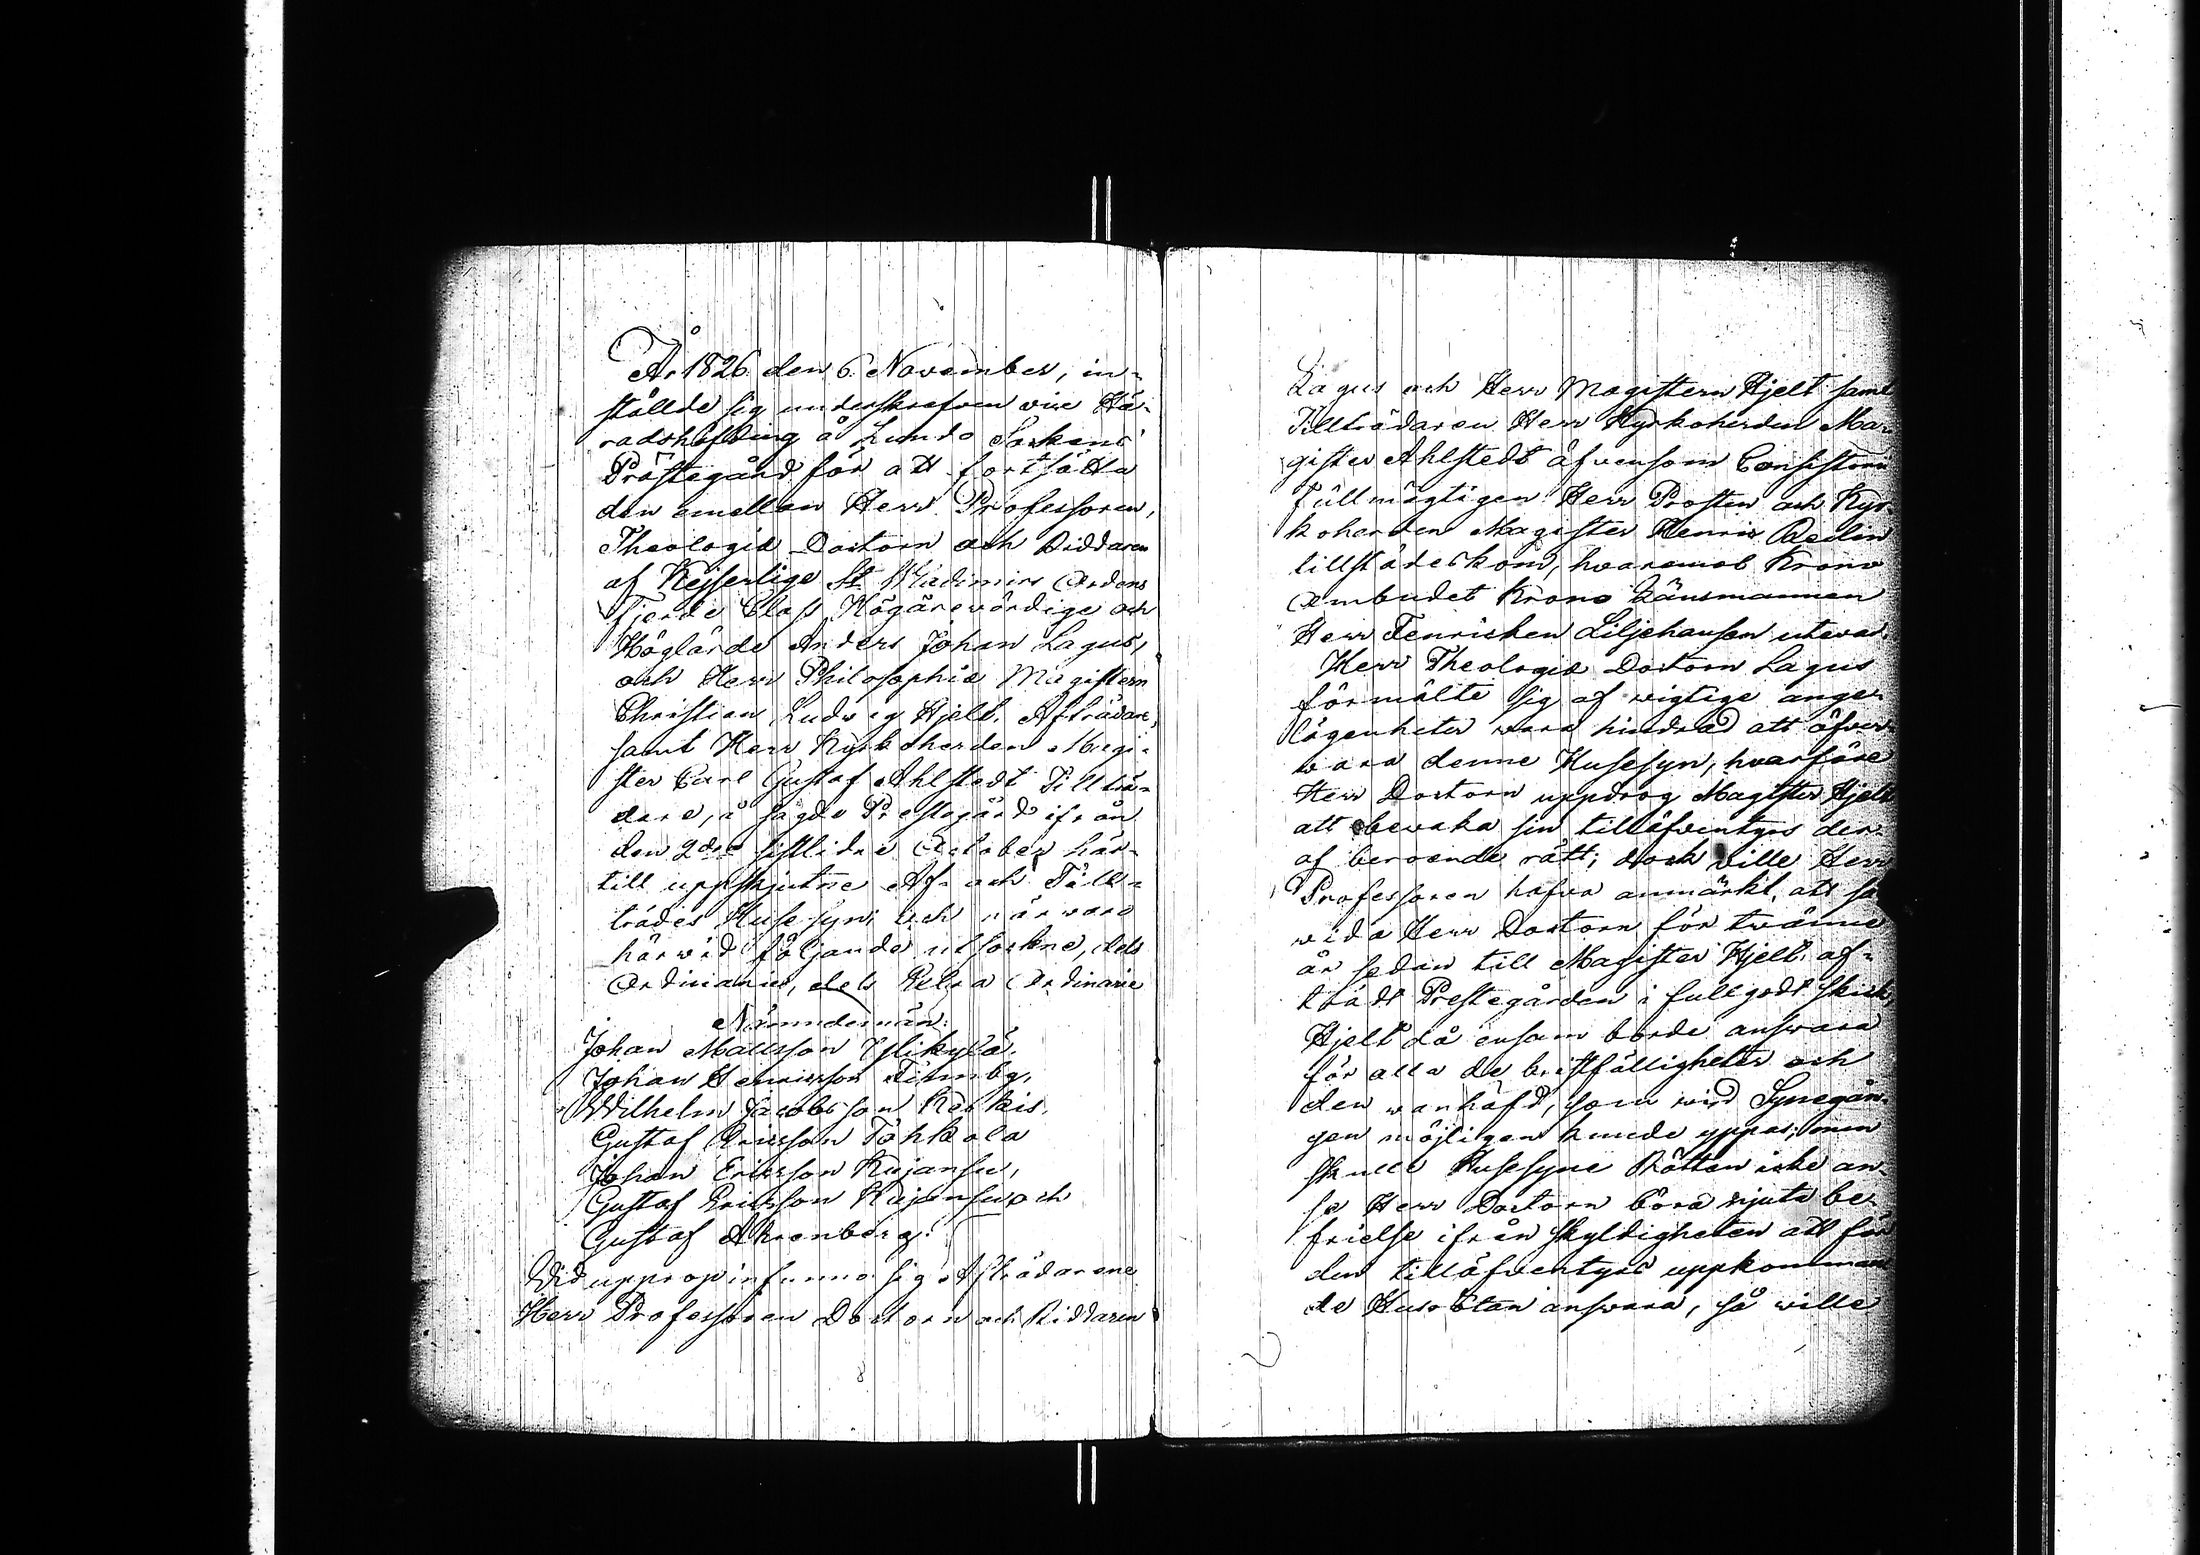 År 1826 den 6 November, in-
ställde sig underskrefven vice Hä-
radshöfding å Lundo Sockens
Prästegård för att fortsätta
den emellan Herr Professoren,
Theologiæ Doctorn och Riddaren
af Kejserlige St Wladimirs Ordens
Fjerde Class Högärevördige och
Höglärde Anders Johan Lagus,
och Herr Philosophiæ Magistern
Christian Ludvig Hjelt, Afträdare,
samt Herr Kyrkoherden Magi-
ster Carl Gustaf Ahlstedt Tillträ-
dare, å sagde Prestegård ifrån
den 2dra sistlidne October här-
till uppskjutne Af- och Till-
trädes Husesyn; och närvoro
härvid följande utsockne, dels
Ordinarie, dels Extra Ordinarie
Nämndemän:
Johan Mattsson Yllikylä.
Johan Henricsson
Wilhelm Jacobsson Keskis,
Gustaf Ericsson Tohkola
Johan Ericsson Kujansu,
Gustaf Ericsson Kujansu och
Gustaf Ahrenberg.
Vid upprop infunno sig Afträdarene
Herr Professoren Doctorn och Riddaren
Lagus och Herr Magistern Hjelt samt
Tillträdaren Herr Kyrkoherden Ma-
gister Ahlstedt äfvensom Consistorii
Fullmägtigen Herr Prosten och Kyr-
koherden Magister Henric Deilin
tillstädeskom, hvaremot Krono
Ombudet Krono Länsmannen
Herr Fenricken Liljehanson utevar.
Herr Theologiæ Doctorn Lagus
förmälte sig af vigtige ange-
lägenheter vara hindrad att öfver-
vara denne Husesyn, hvarföre
Herr Doctorn uppdrog Magister Hjelt
att bevaka sin tilläfventyrs der-
af beroende rätt; dock ville Herr
Professoren hafva anmärkt, att så
vida Herr Doctorn för tvänne
år sedan till Magister Hjelt af-
trädt Prestegården i fullgodt skick,
Hjelt då ensam borde ansvara
för alla de bristfälligheter och
den vanhäfd, som vid Synegån-
gen möjligen kunde yppas; men
skulle Husesyne Rätten icke an-
se Herr Doctorn böra njuta be-
frielse ifrån skyldigheten att för
den tilläfventyrs uppkomman
de Husrötan ansvara, så ville